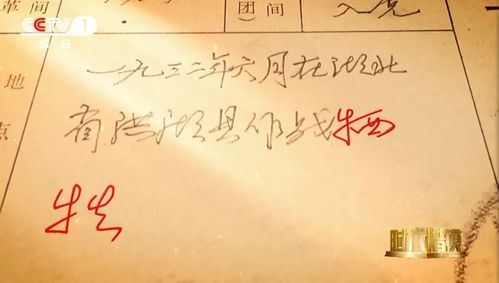 CCTV 1
综合
革 间
团 间
入党
地
点
一九三二年六月在湖北
省洪湖县作战牺
牲
时代楷模